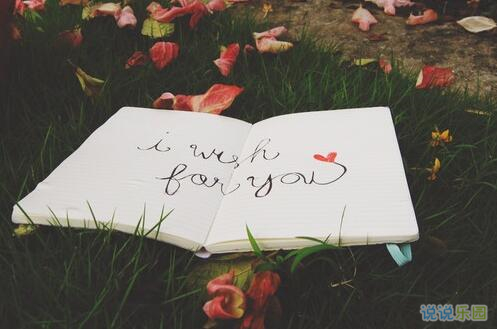 i wish
for you
说说乐园